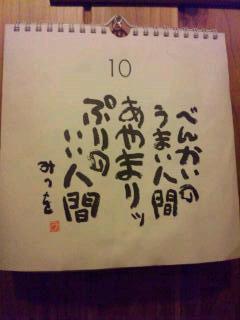 10
べんかいの
うまい人間
あやまりッ
ぷりの
いい人間
みつを